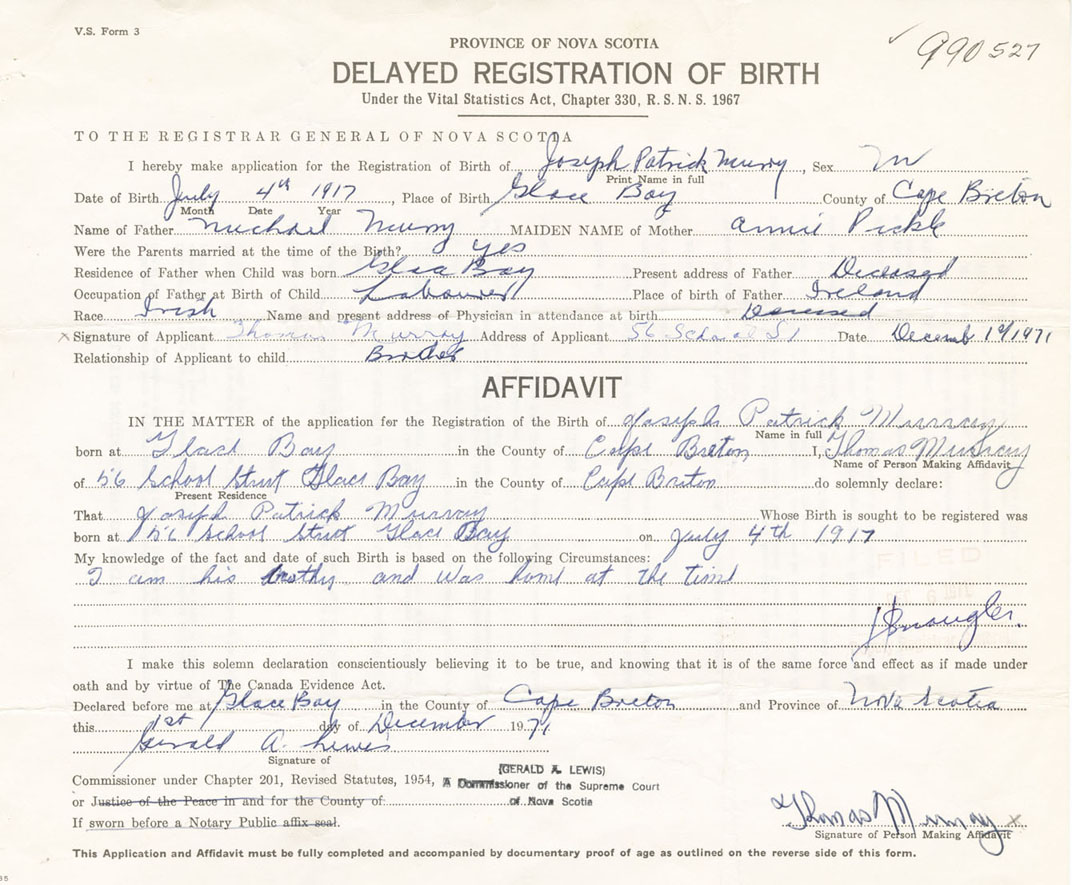 V.S. Form 3
990527
PROVINCE OF NOVA SCOTIA
DELAYED REGISTRATION OF BIRTH
Under the Vital Statistics Act, Chapter 330, R.S.N.S. 1967
TO THE REGISTRAR GENERAL OF NOVA SCOTIA
I hereby make application for the Registration of Birth of Joseph Patrick Murry, Sex M
Print Name in full
Date of Birth July 4th 1917, Place of Birth Glace Bay County of Cape Breton
Month Date Year
Name of Father Michael Murry MAIDEN NAME of Mother Annie Pickle
Were the Parents married at the time of the Birth? yes
Residence of Father when Child was born Glace Bay Present address of Father Deceased
Occupation of Father at Birth of Child Labourer Place of birth of Father Ireland
Race Irish Name and present address of Physician in attendance at birth Deceased
x Signature of Applicant Thomas Murray Address of Applicant 56 School St Date December 1st/1971
Relationship of Applicant to child Brother
AFFIDAVIT
IN THE MATTER of the application for the Registration of the Birth of Joseph Patrick Murray
Name in full
born at Glace Bay in the County of Cape Breton I, Thomas Murray
Name of Person Making Affidavit
of 56 School Street Glace Bay in the County of Cape Breton do solemnly declare:
Present Residence
That Joseph Patrick Murray Whose Birth is sought to be registered was
born at 56 School Street Glace Bay on July 4th 1917
My knowledge of the fact and date of such Birth is based on the following Circumstances:
I am his brother and was home at the time
FILED
I make this solemn declaration conscientiously believing it to be true, and knowing that it is of the same force and effect as if made under
oath and by virtue of The Canada Evidence Act.
Declared before me at Glace Bay in the County of Cape Breton and Province of Nova Scotia
this 1st day of December 1971
Gerald A. Lewis
Signature of
(GERALD A. LEWIS)
Commissioner under Chapter 201, Revised Statutes, 1954, A Commissioner of the Supreme Court
or Justice of the Peace in and for the County of: of Nova Scotia
If sworn before a Notary Public affix seal.
Thomas Murray x
Signature of Person Making Affidavit
This Application and Affidavit must be fully completed and accompanied by documentary proof of age as outlined on the reverse side of this form.